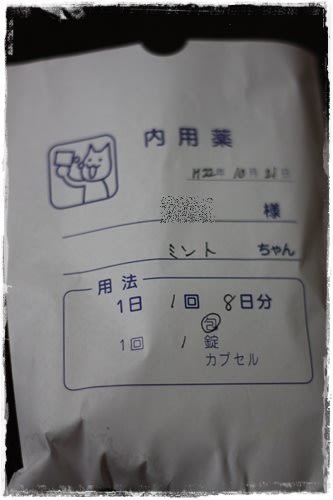 内用薬
H22年 10月 21日
様
ミント ちゃん
用法
1日 1回 8日分
包
1回 1 錠
カプセル